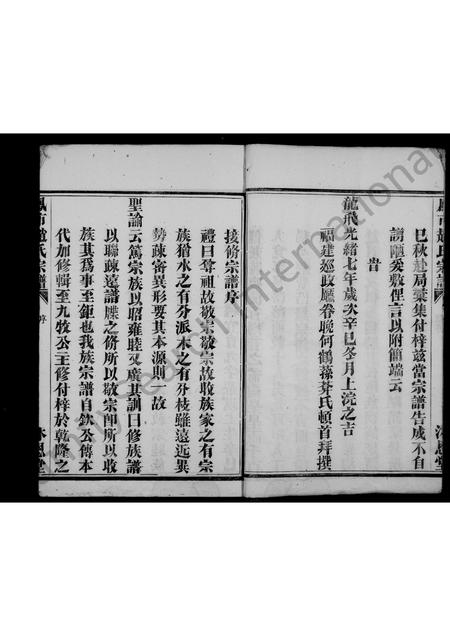 巳秋赴局彙集付梓茲當宗譜告成不自
謭陋爰敷俚言以附簡端云
旹
龍飛光緒七年歲次辛巳冬月上浣之吉
福建經政廳眷晚何鶴藻莽氏頓首拜撰
接脩宗譜序
禮曰尊祖故敬宗敬宗故收族家之有宗
族猶水之有分派木之有分枝雖遠近異
勢疎審異形要其本源則一故
聖諭云篤宗族以昭雍睦又廣其訓曰修族譜
以聯疎遠譜牒之脩所以敬宗卽所以收
族其爲事至鉅也我族宗譜自欽公傳本
代加修輯至九牧公主修付梓於乾隆之
鳳市趙氏宗譜
序
沐恩堂